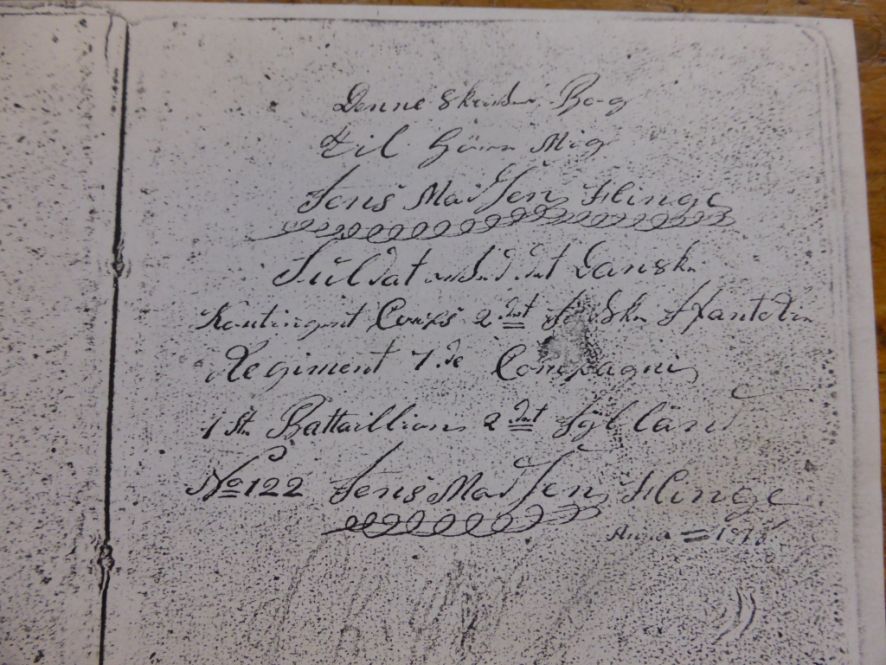 Denne Skriver Bog
til Hörer Mig
Jens Madsen Klinge
Suldat ved det Danske
Kontingent Corps 2det Jydske Ifanteri
Regiment 7de Compagni
1ste Battaillion 2det Jylland
No 122 Jens Madsen Klinge
Anno = 1818